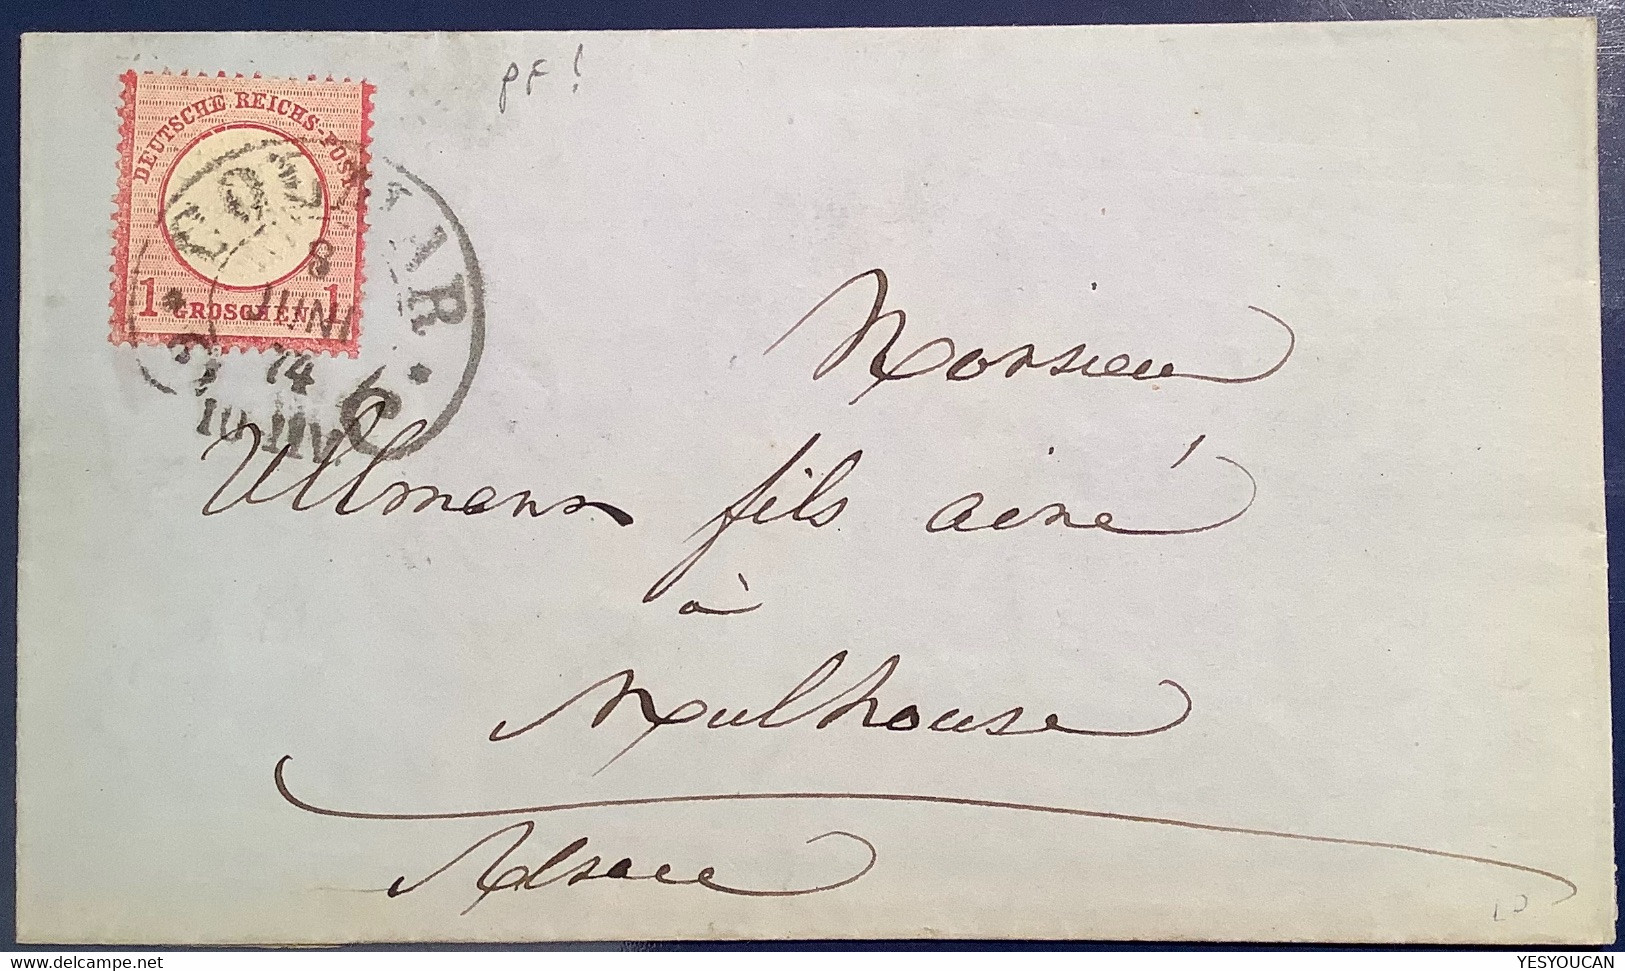 PF!
DEUTSCHE REICHS-POST
1 GROSCHEN 1
COLMAR
8
JUNI
74
Monsieur
Ullmann fils ainé
à
Mulhouse
Alsace
LD
www.delcampe.net
YESYOUCAN